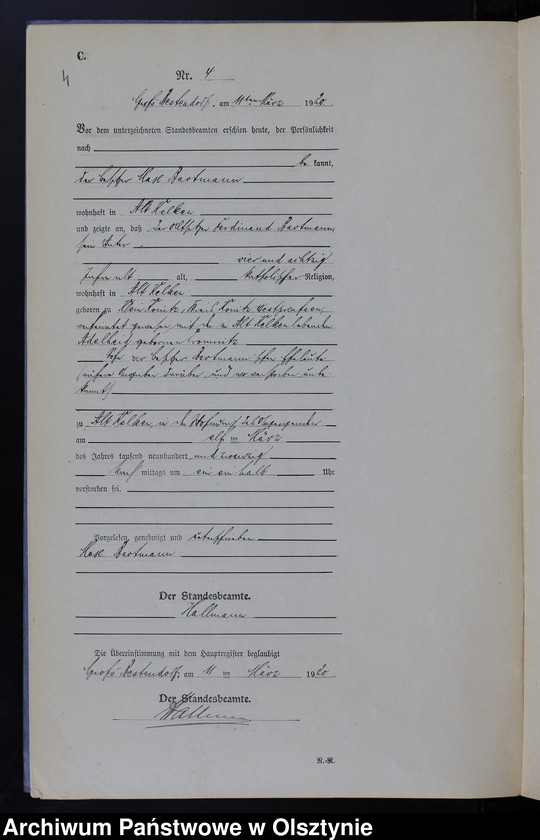 C.
4
Nr. 4
Groß Bestendorf, am 11ten März 1920
Vor dem unterzeichneten Standesbeamten erschien heute, der Persönlichkeit
nach
be kannt,
der Besitzer Max Bartmann
wohnhaft in Alt Kelken
und zeigte an, daß der Altsitzer Ferdinand Bartmann,
sein Vater
vier und achtzig
Jahre alt alt, katholischer Religion,
wohnhaft in Alt Kelken
geboren zu Konitz, Kreis Konitz Westpreußen,
verheiratet gewesen mit der in Alt Kelken lebenden
Adelheid geborenen
Sohn der Besitzer Bartmann'schen Eheleute
(nähere Angaben darüber und wo verstorben unbe
kannt)
zu Alt Kelken, in der Wohnung des Anzeigenden
am elf ten März
des Jahres tausend neunhundert und zwanzig
Nach mittags um ein ein halb Uhr
verstorben sei.
Vorgelesen, genehmigt und unterschrieben
Max Bartmann
Der Standesbeamte.
Hallmann
Die Übereinstimmung mit dem Hauptregister beglaubigt
Groß Bestendorf, am 11 ten März 1920
Der Standesbeamte.
Hallmann
R.-R.
Archiwum Państwowe w Olsztynie